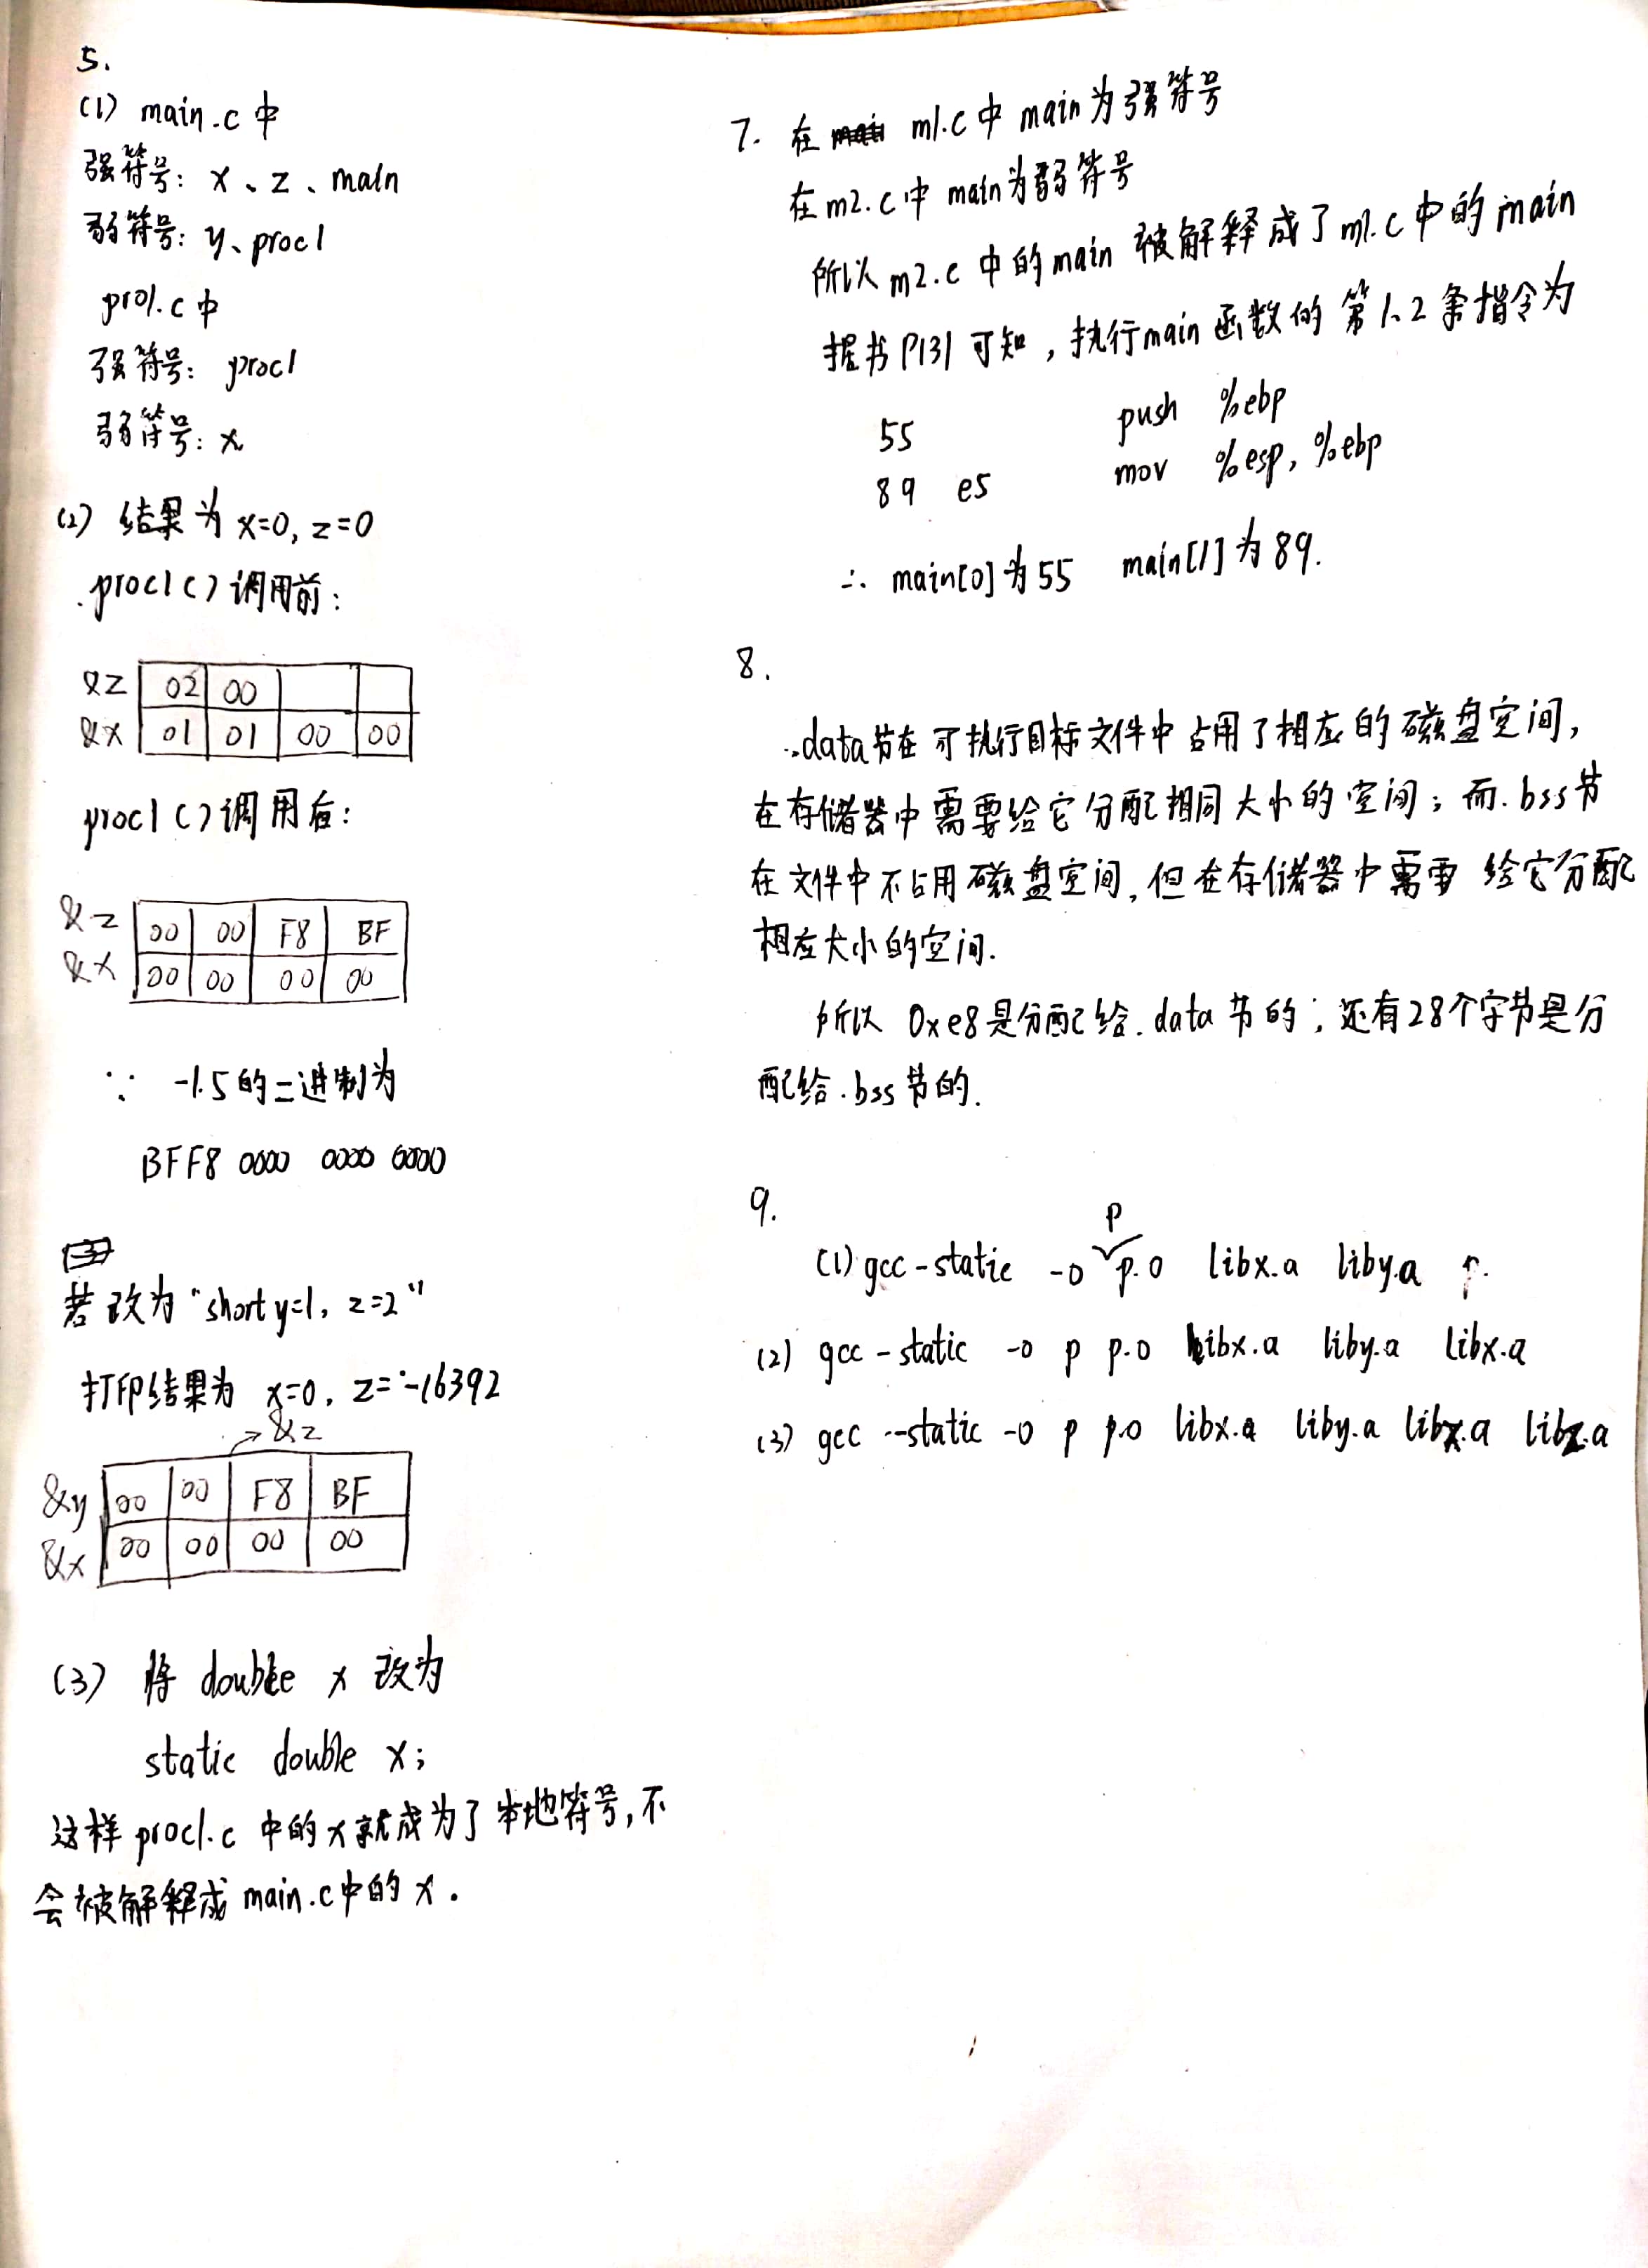 5.
(1) main.c 中
强符号: x、z、main
弱符号: y、proc1
pro1.c 中
强符号: proc1
弱符号: x
(2) 结果为 x=0, z=0
.proc1()调用前:
&z 02 00
&x 01 01 00 00
proc1()调用后:
&z 00 00 F8 BF
&x 00 00 00 00
∵ -1.5的二进制为
BFF8 0000 0000 0000
若改为"short y=1, z=2"
打印结果为 x=0, z=-16392
→&z
&y 00 00 F8 BF
&x 00 00 00 00
(3) 将 double x 改为
static double x;
这样 proc1.c 中的x就成为了本地符号,不
会被解释成 main.c中的 x.
7. 在 m1.c 中 main 为强符号
在m2.c中 main为弱符号
所以 m2.c 中的main 被解释成了 m1.c 中的 main
据书 P131 可知, 执行main 函数的 第1、2 条指令为
55 push %ebp
89 e5 mov %esp, %ebp
∴ main[0]为55 main[1]为89.
8.
.data节在 可执行目标文件中 占用了相应的磁盘空间,
在存储器中需要给它分配相同大小的空间; 而.bss节
在文件中不占用磁盘空间,但在存储器中需要 给它分配
相应大小的空间.
所以 0xe8是分配给.data节的; 还有28个字节是分
配给.bss节的.
9.
p
(1) gcc -static -o p.o libx.a liby.a p.
(2) gcc -static -o p p.o libx.a liby.a libx.a
(3) gcc --static -o p p.o libx.a liby.a libx.a libz.a